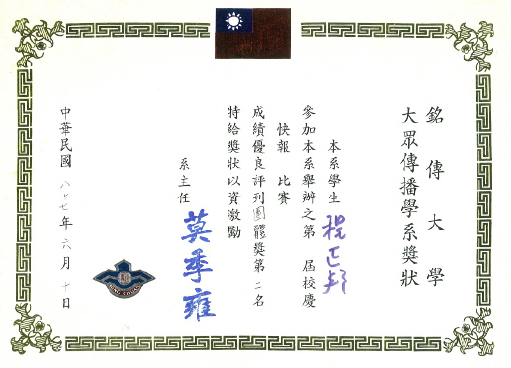 銘傳大學
大眾傳播學系獎狀
本系學生 程正邦
參加本系舉辦之第 屆校慶
快報 比賽
成績優良評列團體獎第二名
特給獎狀以資激勵
系主任 莫季雍
中華民國 八十七年 六月 十日